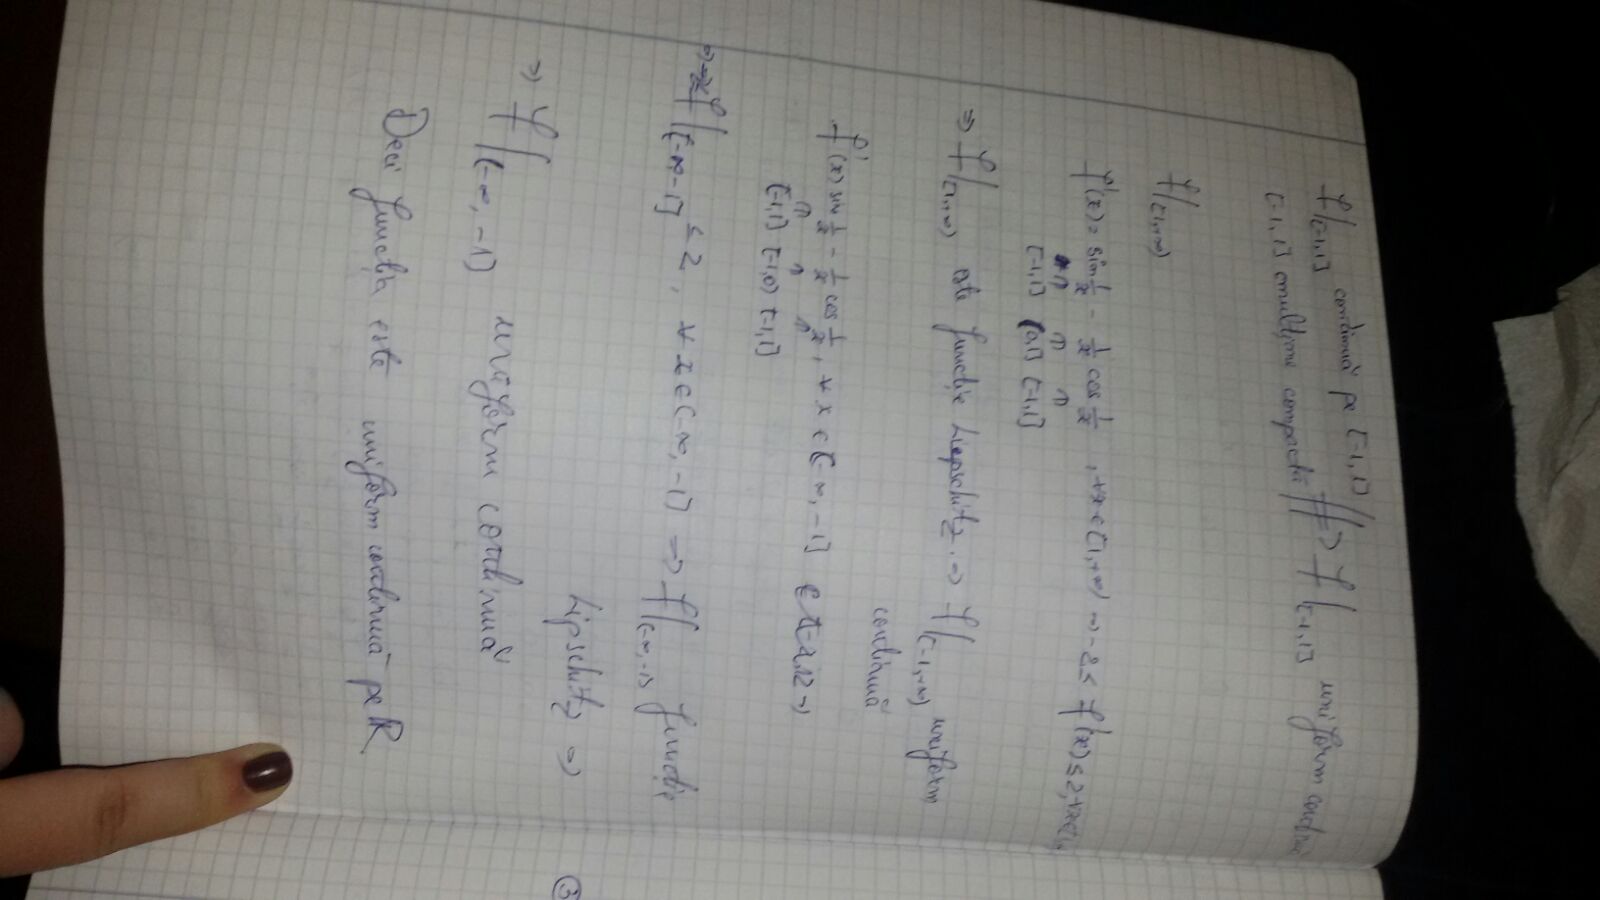 f|[-1,1] continuă pe [-1,1]
[-1,1] mulțime compactă
⇒ f|[-1,1] uniform continuă
f|[1,+∞)
f'(x) = sin 1/x - 1/x cos 1/x , ∀x∈[1,+∞) ⇒ -2 ≤ f'(x) ≤ 2, ∀x∈[1,
↑ ↑ ↑
[-1,1] (0,1] [-1,1]
⇒ f|[1,+∞) este funcție Liepschitz. ⇒ f|[-1,+∞) uniform
continuă
f'(x) sin 1/x - 1/x cos 1/x, ∀ x ∈ [-∞, -1]
↑ ↑ ↑
[-1,1] [-1,0) [-1,1]
f|[-∞-1] ≤ 2, ∀ x ∈ (-∞, -1] ⇒ f|(-∞,-1] funcție
Lipschitz ⇒
⇒ f|(-∞, -1] uniform continuă
Deci funcția este uniform continuă pe ℝ
3